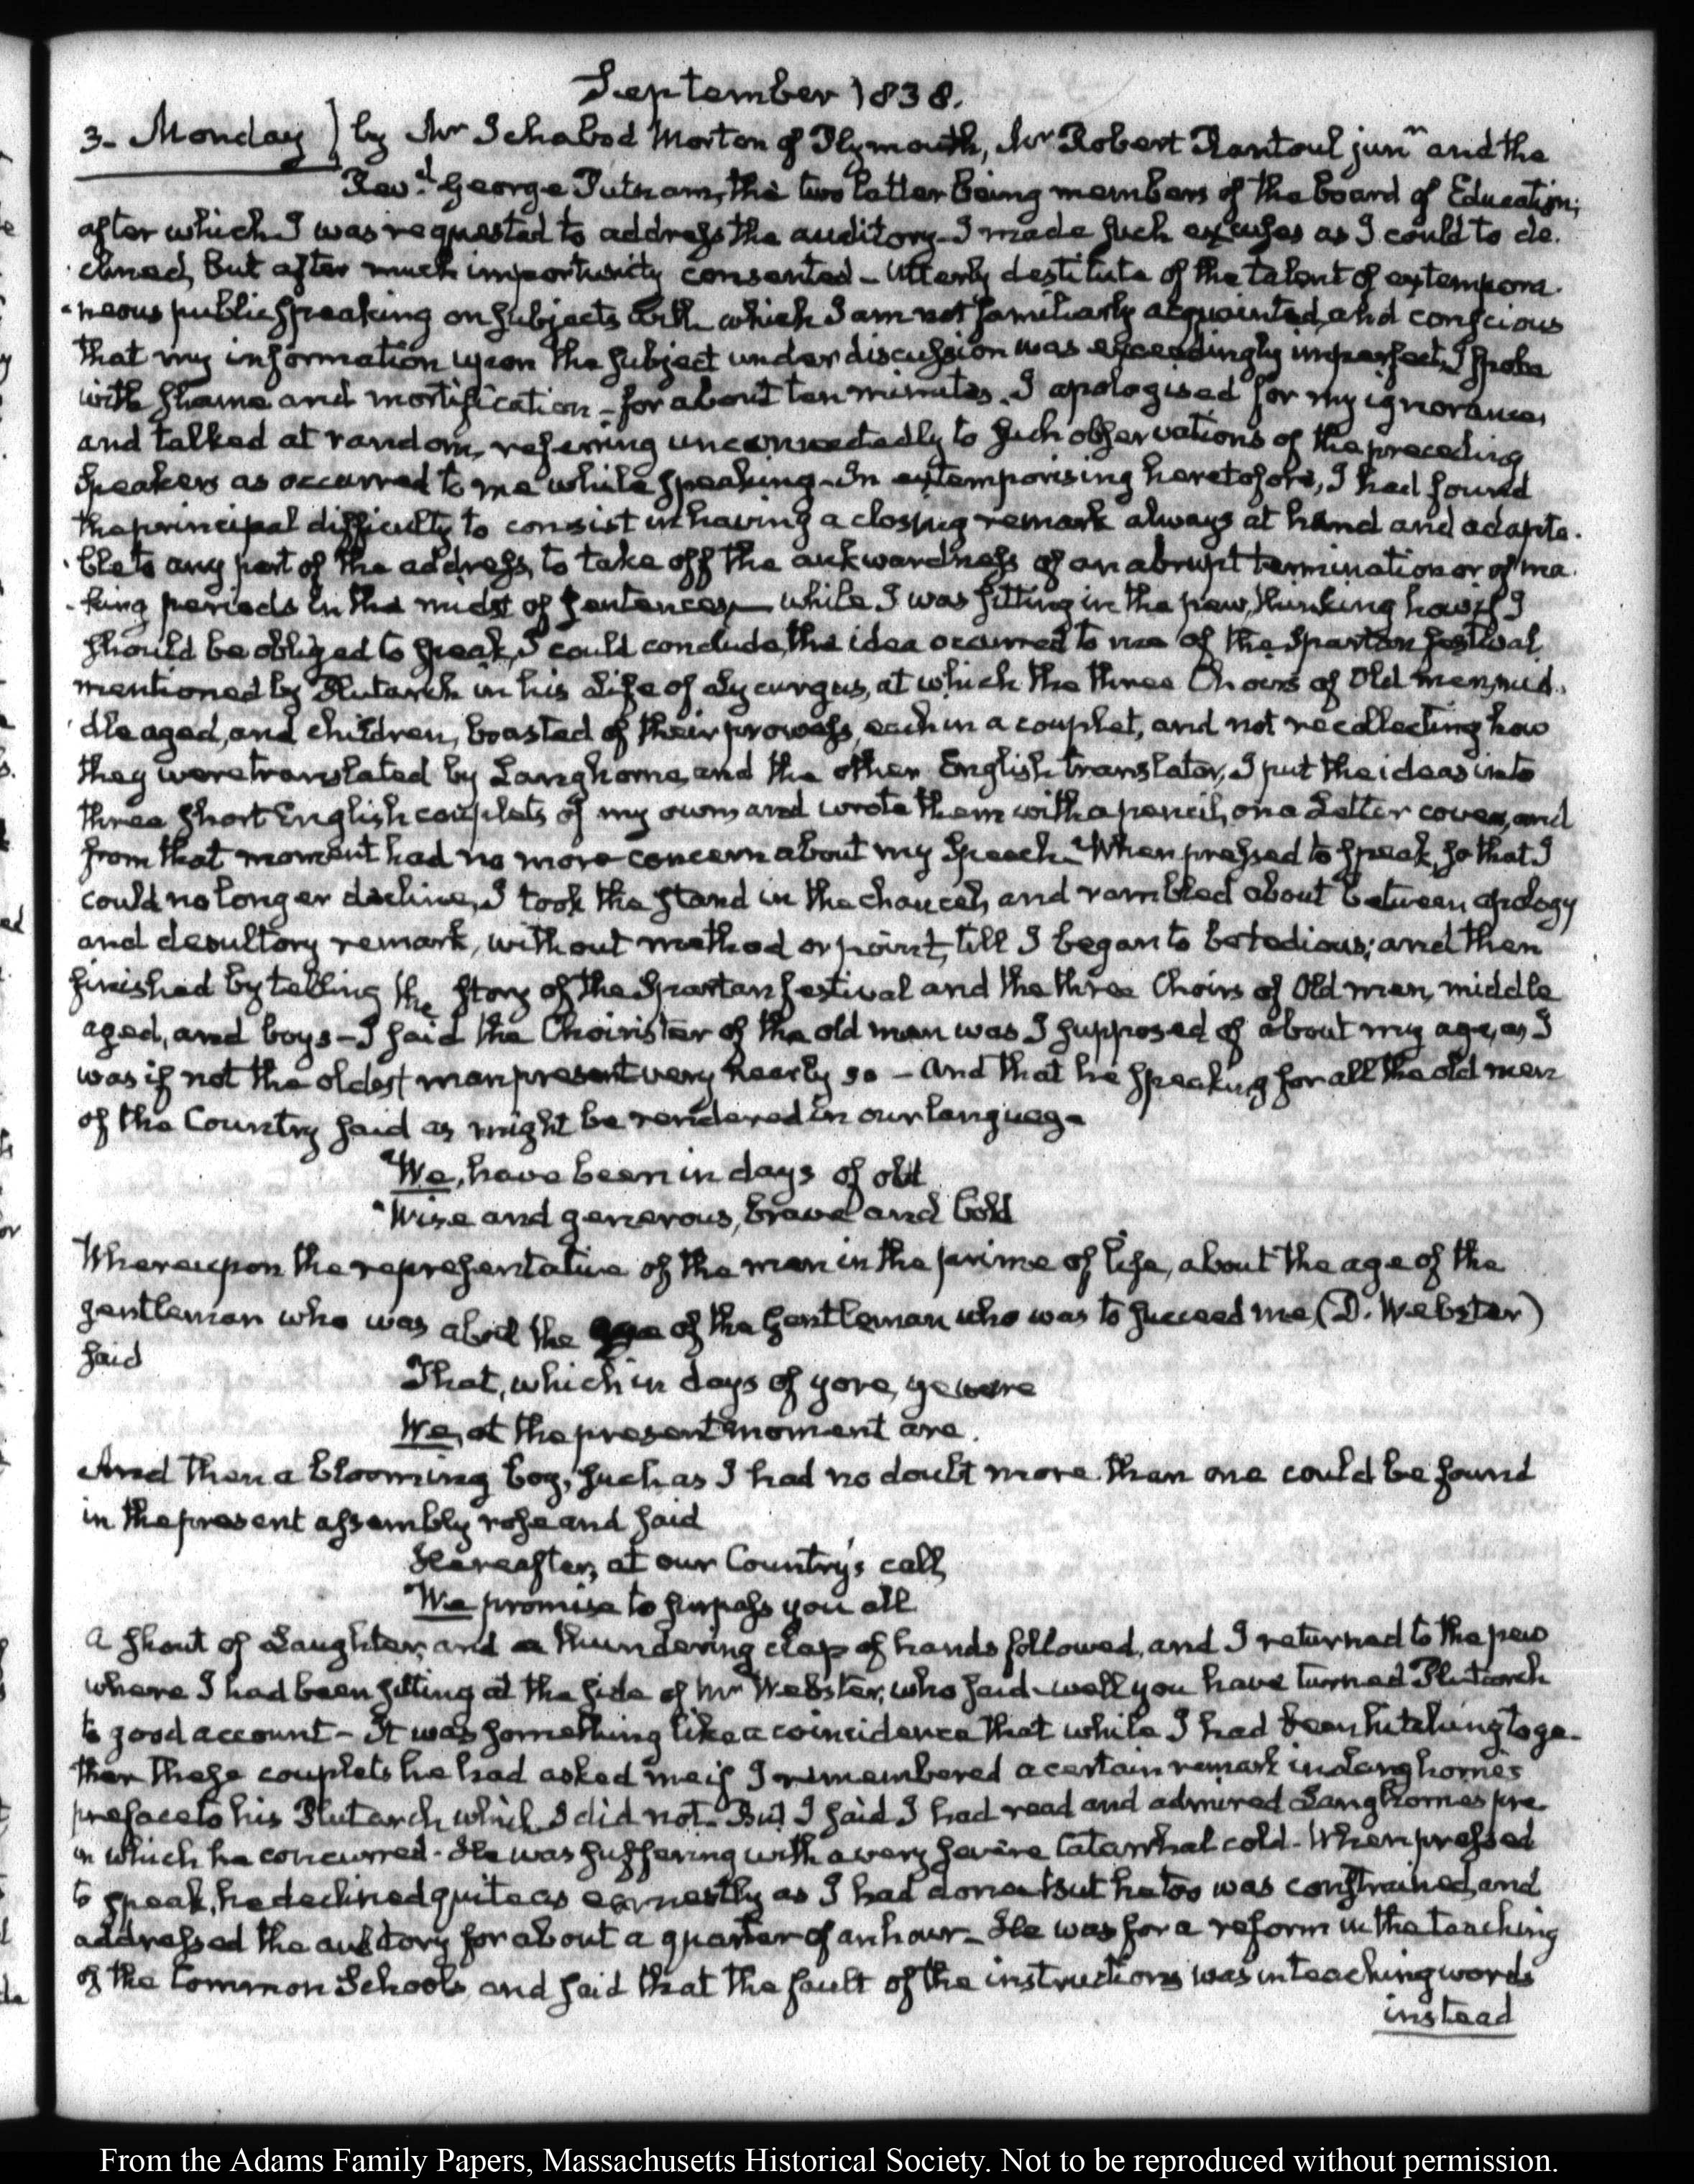 September 1838.
3. Monday) by Mr Ichabod Morton of Plymouth, Mr Robert Rantoul junr and the
Revd. George Putnam, the two latter being members of the board of Education;
after which I was requested to address the auditory. I made such excuses as I could to de-
-clined, but after much importunity consented - Utterly destitute of the talent of extempora-
-neous public speaking on subjects with which I am not familiarly acquainted, and conscious
that my information upon the subject under discussion was exceedingly imperfect, I spoke
with shame and mortification - for about ten minutes. I apologised for my ignorance,
and talked at random, referring unconnectedly to such observations of the preceding
Speakers as occurred to me while speaking - In extemporising heretofore, I had found
the principal difficulty to consist in having a closing remark always at hand and adapta-
-ble to any part of the address, to take off the awkwardness of an abrupt termination or of ma-
-king periods in the midst of sentences - while I was sitting in the pew, thinking how if I
should be obliged to speak, I could conclude, the idea occurred to me of the Spartan festival
mentioned by Plutarch in his Life of Lycurgus, at which the three Choirs of Old men, mid-
-dle aged, and children, boasted of their prowess, each in a couplet, and not recollecting how
they were translated by Langhorne, and the other English translator, I put the ideas into
three short English couplets of my own and wrote them with a pencil, on a Letter cover, and
from that moment had no more concern about my Speech - When pressed to speak, so that I
could no longer decline, I took the stand in the chancel, and rambled about between apology
and desultory remark, without method or point, till I began to be tedious; and then
finished by telling the story of the Spartan festival and the three Choirs of Old men, middle
aged, and boys - I said the Chorister of the old men was I supposed of about my age, as I
was if not the oldest man present very nearly so - And that he speaking for all the old men
of the Country said as might be rendered in our language
We, have been in days of old
Wise and generous, brave and bold
Whereupon the representative of the men in the prime of life, about the age of the
gentleman who was about the age of the Gentleman who was to succeed me (D. Webster)
said
That, which in days of yore, ye were
We, at the present moment are.
And then a blooming boy, such as I had no doubt more than one could be found
in the present assembly rose and said
Hereafter, at our Country's call,
We promise to surpass you all
A shout of Laughter, and a thundering clap of hands followed, and I returned to the pew
where I had been sitting at the side of Mr Webster, who said - well you have turned Plutarch
to good account - It was something like a coincidence that while I had been hitching toge-
ther these couplets he had asked me if I remembered a certain remark in Langhorne's
preface to his Plutarch which I did not - But I said I had read and admired Langhornes pre
in which he concurred - He was suffering with a very severe Catarrhal cold - When pressed
to speak, he declined quite as earnestly as I had done - But he too was constrained, and
addressed the auditory for about a quarter of an hour - He was for a reform in the teaching
of the Common Schools, and said that the fault of the instructions was in teaching words
instead
From the Adams Family Papers, Massachusetts Historical Society. Not to be reproduced without permission.